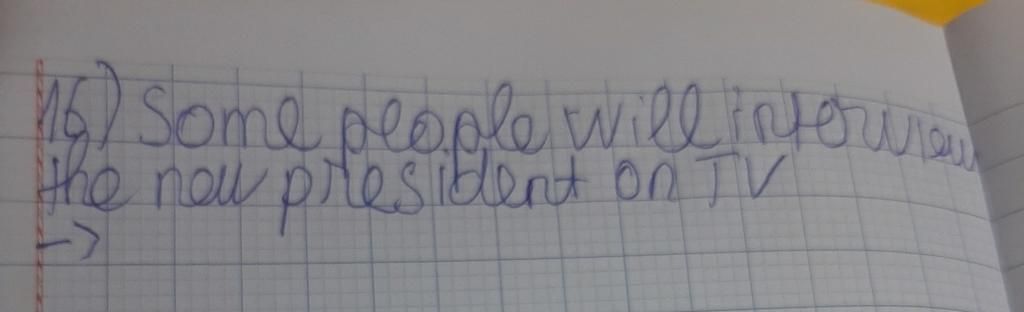 16) Some people will interview
the new president on TV
->